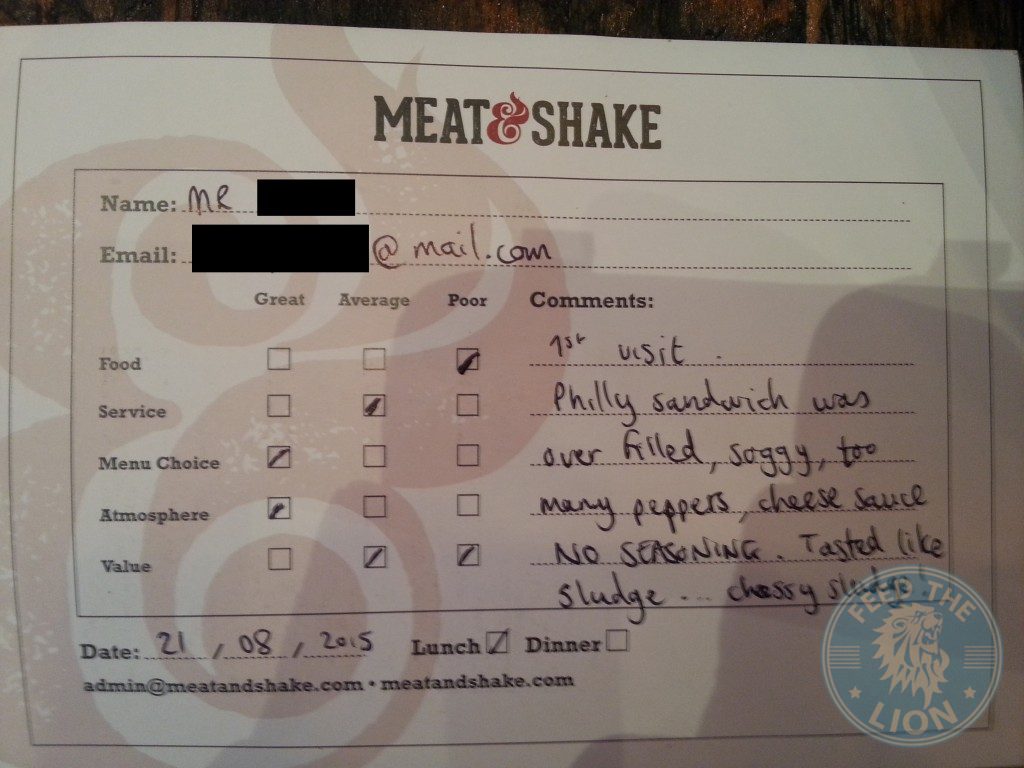 MEAT&SHAKE
Name: MR
Email: @mail.com
Great Average Poor Comments:
Food
1st visit.
Service
Philly sandwich was
Menu Choice
over filled, soggy, too
Atmosphere
many peppers, cheese sauce
Value
NO SEASONING. Tasted like
sludge ... chessy sludge!
Date: 21 / 08 / 2015 Lunch Dinner
admin@meatandshake.com • meatandshake.com
FEED THE
LION